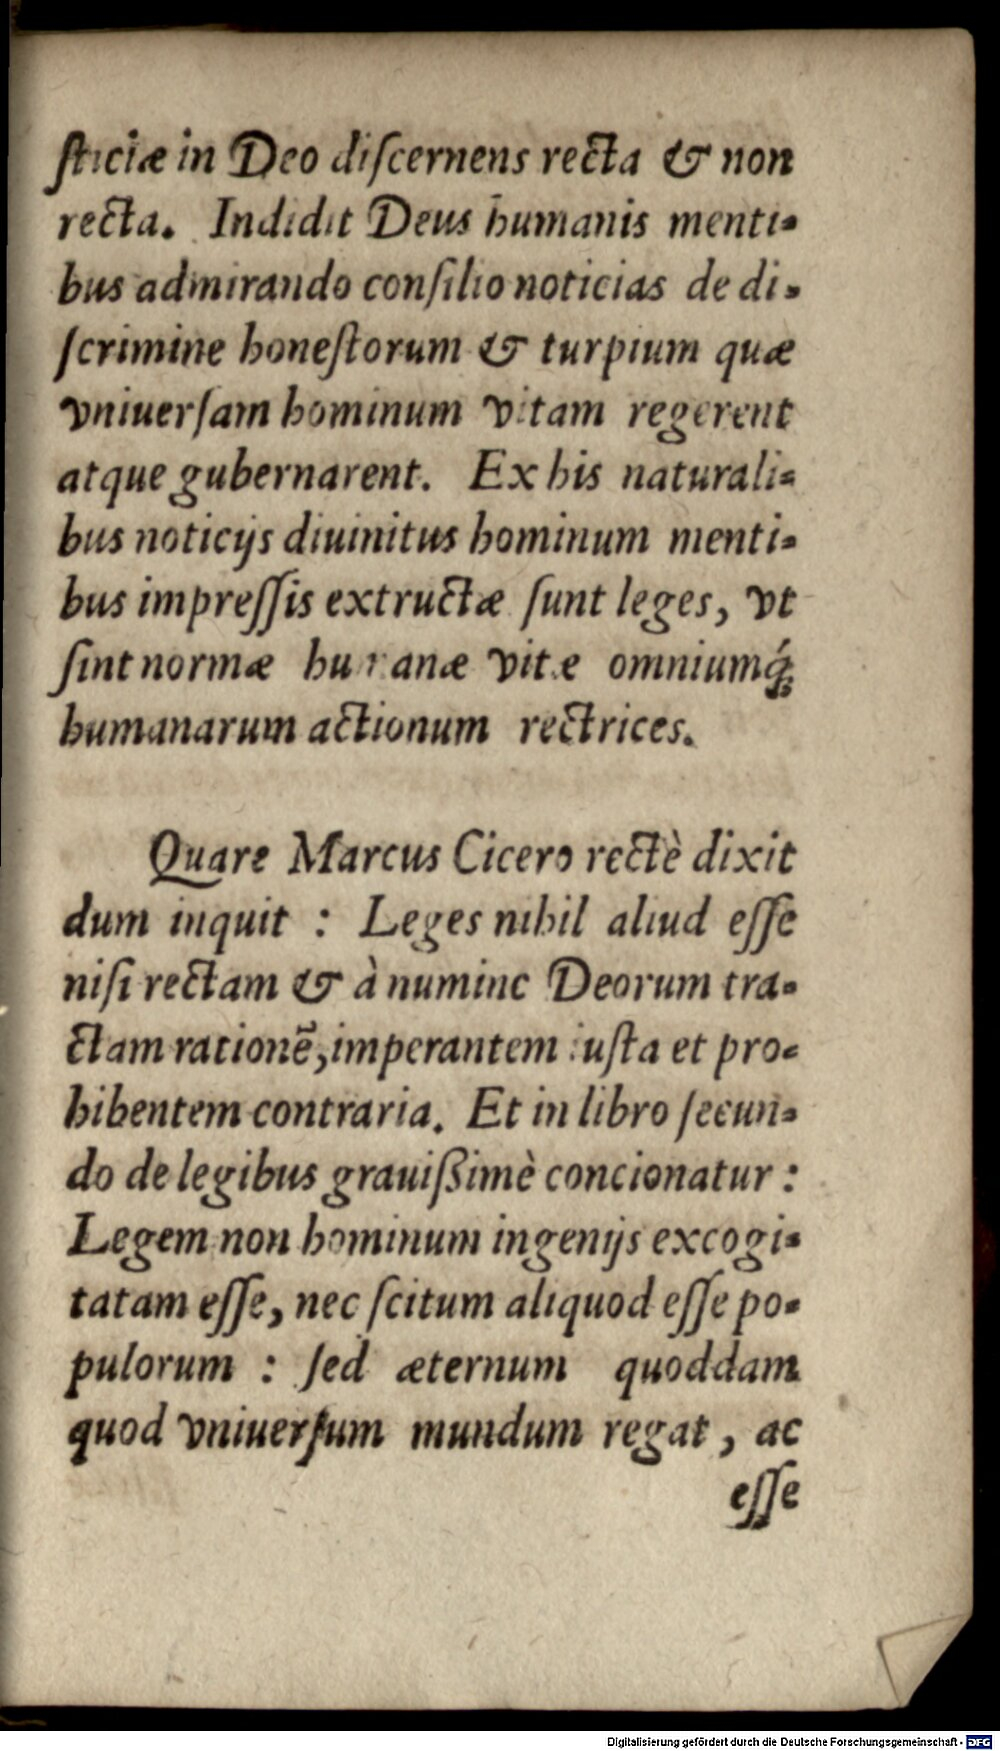 sticiæ in Deo discernens recta & non
recta. Indidit Deus humanis menti-
bus admirando consilio noticias de di-
scrimine honestorum & turpium quæ
vniuersam hominum vitam regerent
atque gubernarent. Ex his naturali-
bus noticijs diuinitus hominum menti-
bus impressis extructæ sunt leges, vt
sint normæ humanæ vitæ omniumq́;
humanarum actionum rectrices.
Quare Marcus Cicero rectè dixit
dum inquit : Leges nihil aliud esse
nisi rectam & à numine Deorum tra-
ctam rationē, imperantem iusta et pro-
hibentem contraria. Et in libro secun-
do de legibus grauißimè concionatur :
Legem non hominum ingenijs excogi-
tatam esse, nec scitum aliquod esse po-
pulorum : sed æternum quoddam
quod vniuersum mundum regat, ac
esse
Digitalisierung gefördert durch die Deutsche Forschungsgemeinschaft - DFG